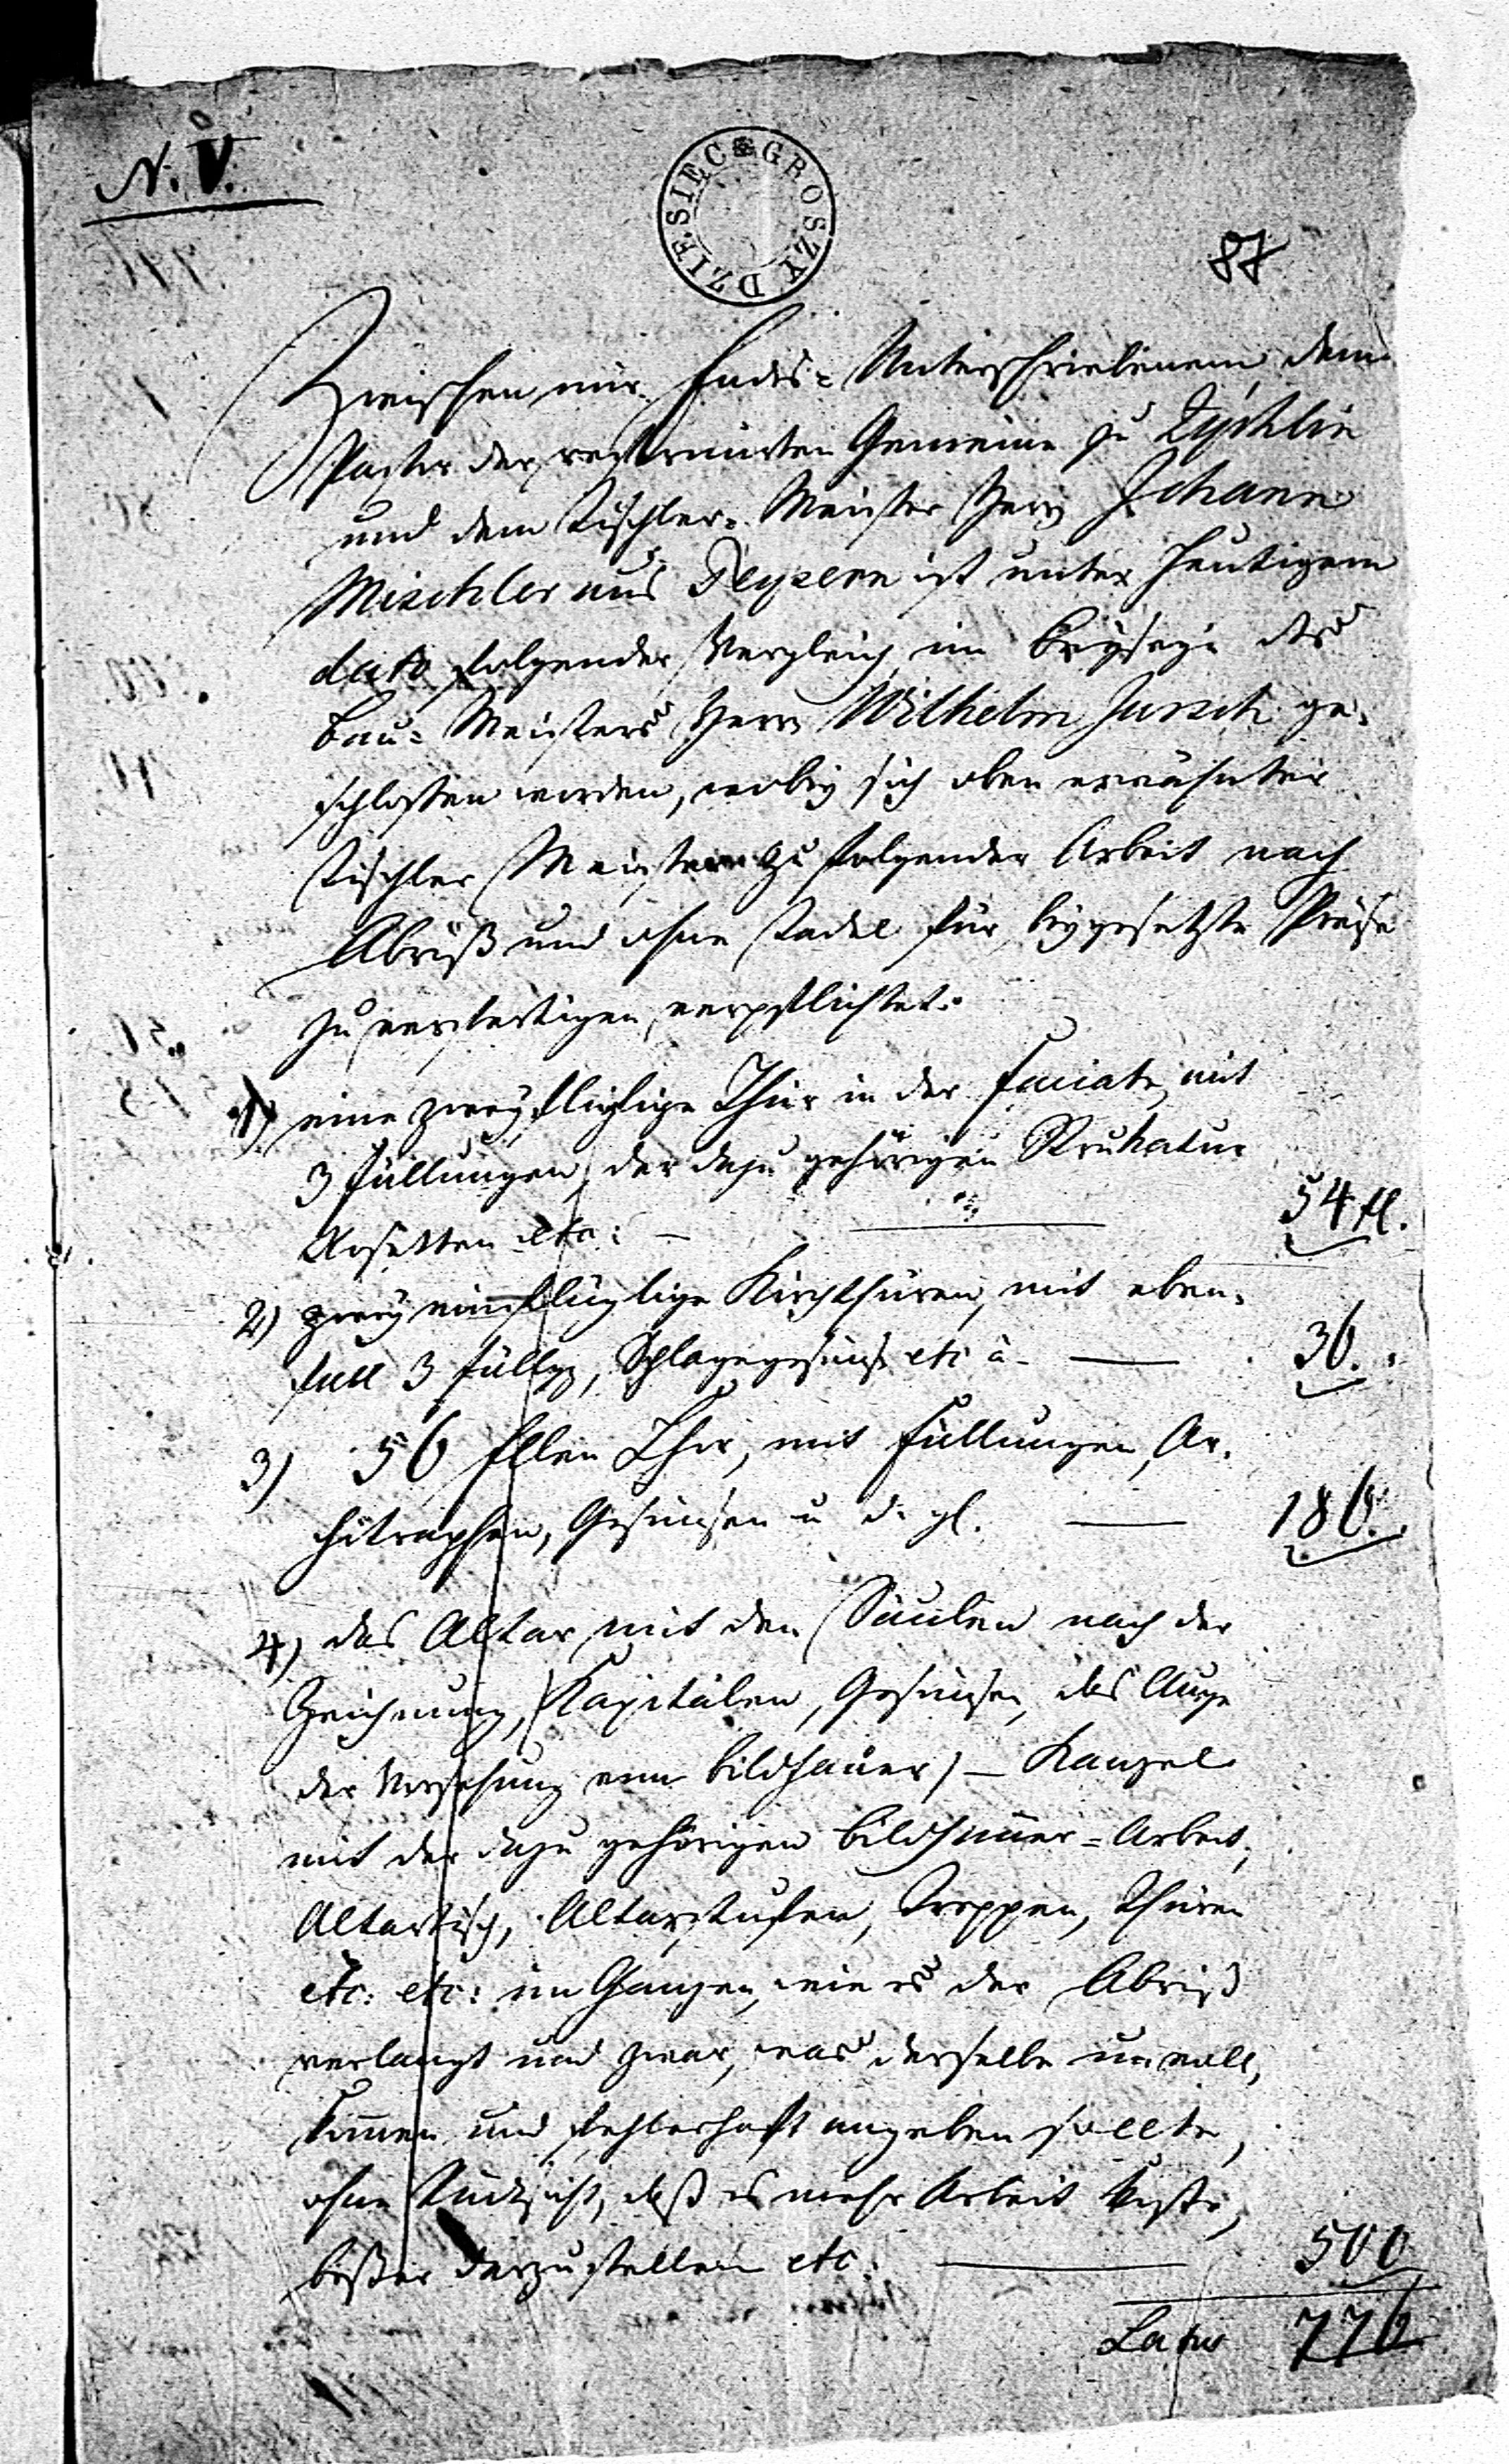 N. V.
DZIESIEC GROSZY
87
Zwischen mir Endes-Unterschriebenem dem
Pastor der reformirten Gemeine zu Zychlin
und dem Tischler-Meister Herrn Johann
Mischler aus Peysern ist unter heutigem
dato folgender Vergleich im Beyseyn des
Bau-Meisters Herrn Wilhelm ge-
schlossen worden, wobey sich oben erwähnter
Tischler Meister zu folgender Arbeit nach
Abriß und ohne Tadel für beygesetzte Preise
zu verfertigen verpflichtet.
1) eine zweyflüglige Thür in der Faciate, mit
3 Füllungen, der dazu gehörigen Stukatur
Rosetten etc: — 54 fl.
2) zwey einflüglige Kirchthüren, mit eben-
fall 3 Füllg, Schlagegesims etc à — 36.
3) 56 Ellen Chor, mit Füllungen, Ar-
chitraphen, Gesimsen u d. gl. — 186.
4) das Altar, mit den Säulen nach der
Zeichnung, Kapitälen, Gesimsen, das Auge
der Vorsehung vom Bildhauer) — Kanzel
mit der dazu gehörigen Bildhauer-Arbeit,
Altartisch, Altarstufen, Treppen, Thüren
etc: etc: im Ganzen, wie es der Abriß
verlangt und zwar, was derselbe unvoll-
kommen und fehlerhaft angeben sollte,
ohne Rücksicht, daß es mehr Arbeit koste,
besser darzustellen etc: — 500
Latus 776